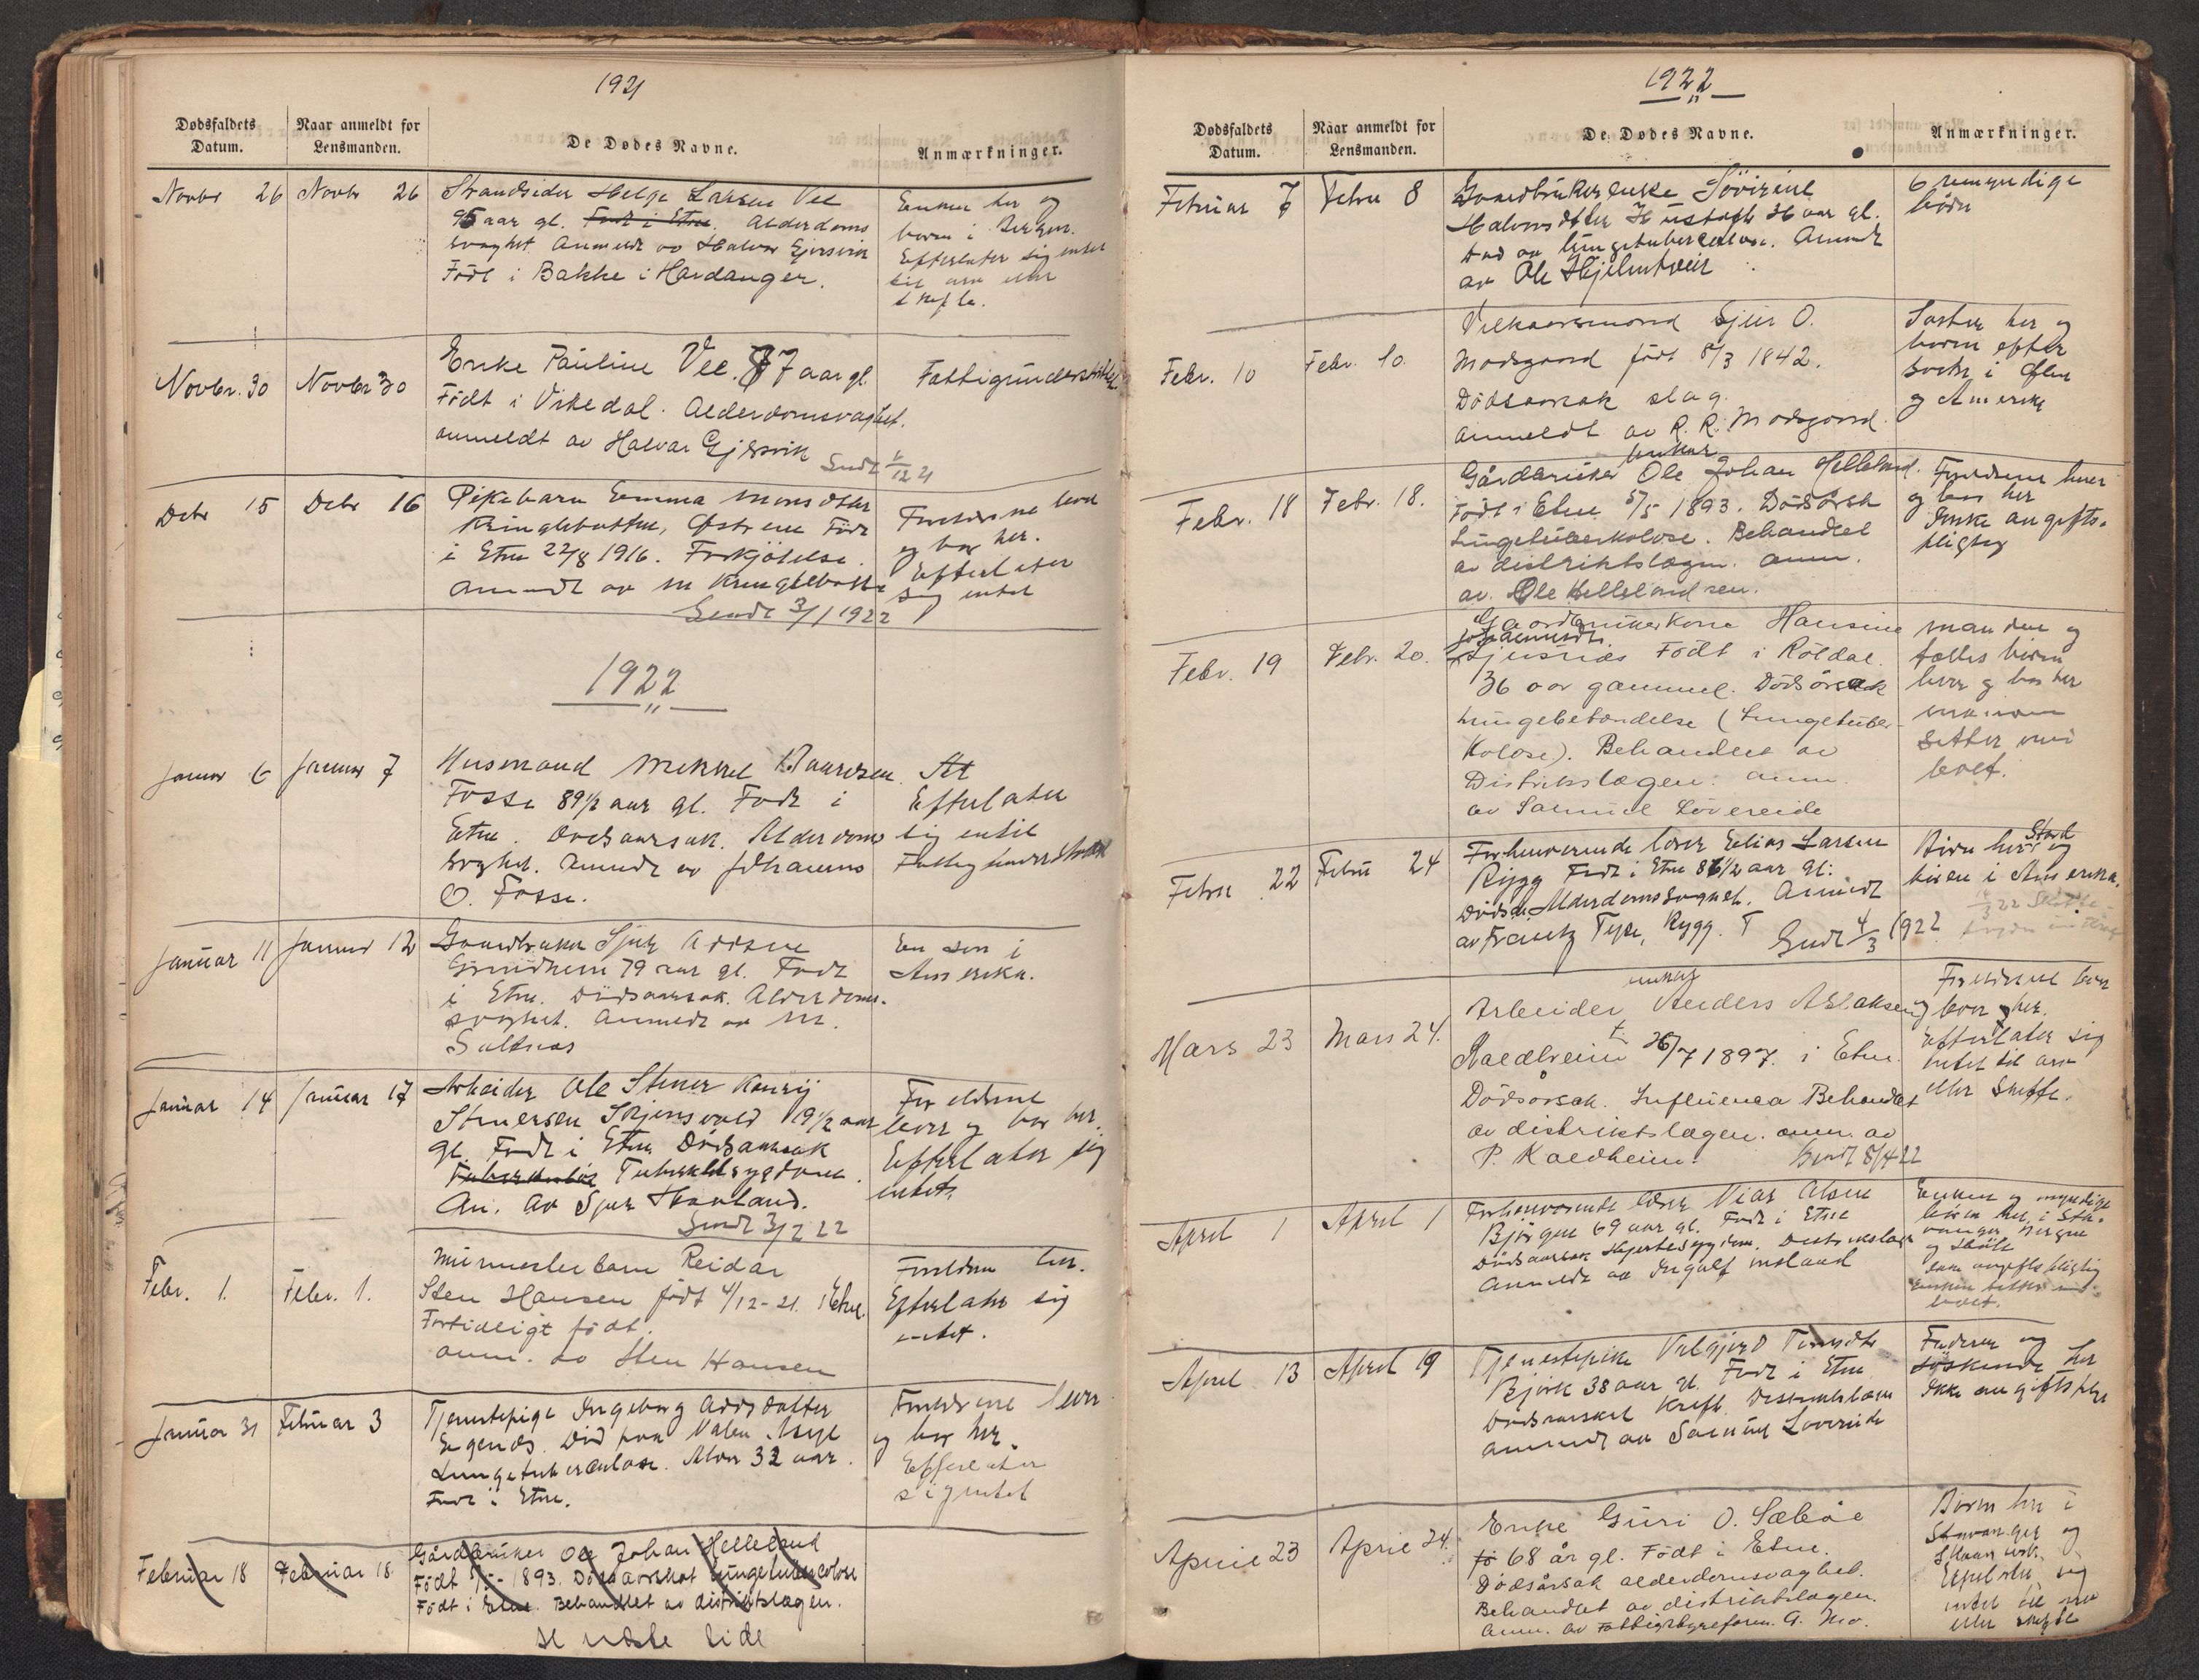 1921
Dødsfaldets Datum.
Naar anmeldt for Lensmanden.
De Dødes Navne.
Anmærkninger.
Novbr 26 Novbr 26
Strandsider Helge Larsen Vee
95 aar gl. Født i Etne. Alderdoms
svaghet Anmeldt av Halvor Gjersvik
Født i Bakke i Hardanger.
Enken her og
born i Bergen.
Efterlater sig intet
til arv eller
skifte.
Novbr. 30 Novbr 30
Enke Pauline Vee. 87 aar gl.
Født i Vikedal. Alderdomsvaghet.
anmeldt av Halvar Gjersvik
Sendt 1/12 21
Fattigunderstøttet
Debr 15 Debr 16
Pikebarn Emma Monsdtter
Kringlebotten, Østreim Født
i Etne 22/8 1916. Forkjølelse.
Anmeldt av M Kringlebotten
Sendt 3/1 1922
Foreldrene lever
og bor her.
Efterlater
sig intet
1922
Januar 6 Januar 7
Husmand Mikkel Baardsen
Fosse 89 1/2 aar gl. Født i
Etne. Dødsaarsak. Alderdoms
svaghet. Anmeldt av Johannes
O. Fosse.
Efterlater
sig intet
Fattigunderstøttet
Januar 11 Januar 12
Gaardbruker Sjur Addsen
Grindheim 79 aar gl. Født
i Etne. Dødsaarsak. Alderdoms-
svaghet. Anmeldt av M.
Saltnes
En søn i
Amerika.
Januar 14 Januar 17
Arbeider Ole Stener
Stenersen 19 1/2 aar
gl. Født i Etne Dødsaarsak
Tuberkulos Tuberkelsygdom.
An. av Sjur Skarland.
Sendt 3/2 22
Foreldrene
lever og bor her.
Efterlater sig
intet.
Febr. 1. Febr. 1.
Mumesterbarn Reidar
Sten Hansen født 4/12-21. i Etne.
Fortidligt født.
anm. av Sten Hansen
Foreldre her.
Efterlater sig
intet.
Januar 31 Februar 3
Tjenestepige Ingeborg Addsdatter
Egenæs. Død paa Valen Asyl
Lungetuberculose. Alder 32 aar.
Født i Etne.
Foreldrene lever
og bor her.
Efterlater
sig intet
Februar 18 Februar 18
Gårdbruker Ole Johan Helleland
Født 5/5-1893. Dødsaarsak Lungetuberculose
Født i Etne. Behandlet av distriktslægen.
se næste side
1922
Dødsfaldets Datum.
Naar anmeldt for Lensmanden.
De Dødes Navne.
Anmærkninger.
Februar 7 Febru 8
Gaardbrukerenke Søvirine
Halvorsdtter Hustoft 36 aar gl.
død av lungetuberculose. Anmeldt
av Ole Skjelmtveit
6 umyndige
børn
Febr. 10 Febr. 10.
Vilkaarsmand Sjur O.
Mødsgaard født 8/3 1842.
Dødsaarsak slag.
Anmeldt av R. R. Mødsgaard.
Søster her og
børn efter
søstre i Ølen
og Amerika
Febr. 18 Febr. 18.
unkar
Gårdbruker Ole Johan Helleland.
Født i Etne 5/5 1893. Dødsårsak
Lungetuberkolose. Behandlet
av distriktslægen. anm.
av. Ole Helleland sen.
Foreldrene lever
og bor her
Ikke avgifts-
pligtig
Febr. 19 Febr. 20.
Gaardbrukerkone Hansine
Johannesdtr.
Stjernes Født i Røldal.
36 aar gammel. Dødsårsak
Lungebetændelse (Lungetuber-
kolose). Behandlet av
Distriktslægen. anm.
av Samuel Løvereide
Manden og
fælles børn
lever og bor her
enkemann
sitter med
boet.
Febru 22 Febru 24
Forhenværende lærer Elias Larsen
Rygg Født i Etne 86 1/2 aar gl.
Dødsa. Alderdomssvaghet. Anmeldt
av Frantz Tysse, Rygg.
Sendt 4/3 1922
Børn her, Stord og
børn i Amerika.
Mars 23 Mars 24.
unkar
Arbeider Anders Aslaksen
Kaldheim f. 26/7 1897. i Etne.
Dødsårsak. Influensa Behandlet
av distriktslægen. anm. av
P. Kaldheim.
Sendt 8/4 22
Foreldrene lever
og bor her.
Efterlater sig
intet til arv
eller skifte.
April 1 April 1
Forhenværende lærer Vier Olsen
Bjørgen 69 aar gl. Født i Etne
Dødsaarsak Hjertesygdom. Distriktslæge
Anmeldt av Ingolf Østland
Enken og myndige
børn her, i Sta-
vanger, Bergen
og Skåle
ikke avgiftspligtig
Enken sitter med
boet.
April 13 April 19
Tjenestepike Valgjerd
Bjørk 38 aar gl. Født i Etne
Dødsaarsak Kreft. Distriktslæge
anmeldt av Samuel Løvereide
Faderen og
søskende her
Ikke avgiftsplig
April 23 April 24.
Enke Guri O. Sæbøe
fø 68 år gl. Født i Etne.
Dødsårsak alderdomsvaghet.
Behandlet av distriktslægen.
Anm. av Fattigstyreform. G. Mo.
Børn her i
Stavanger og
Skaanevik.
Efterlater sig
intet til arv
eller skifte